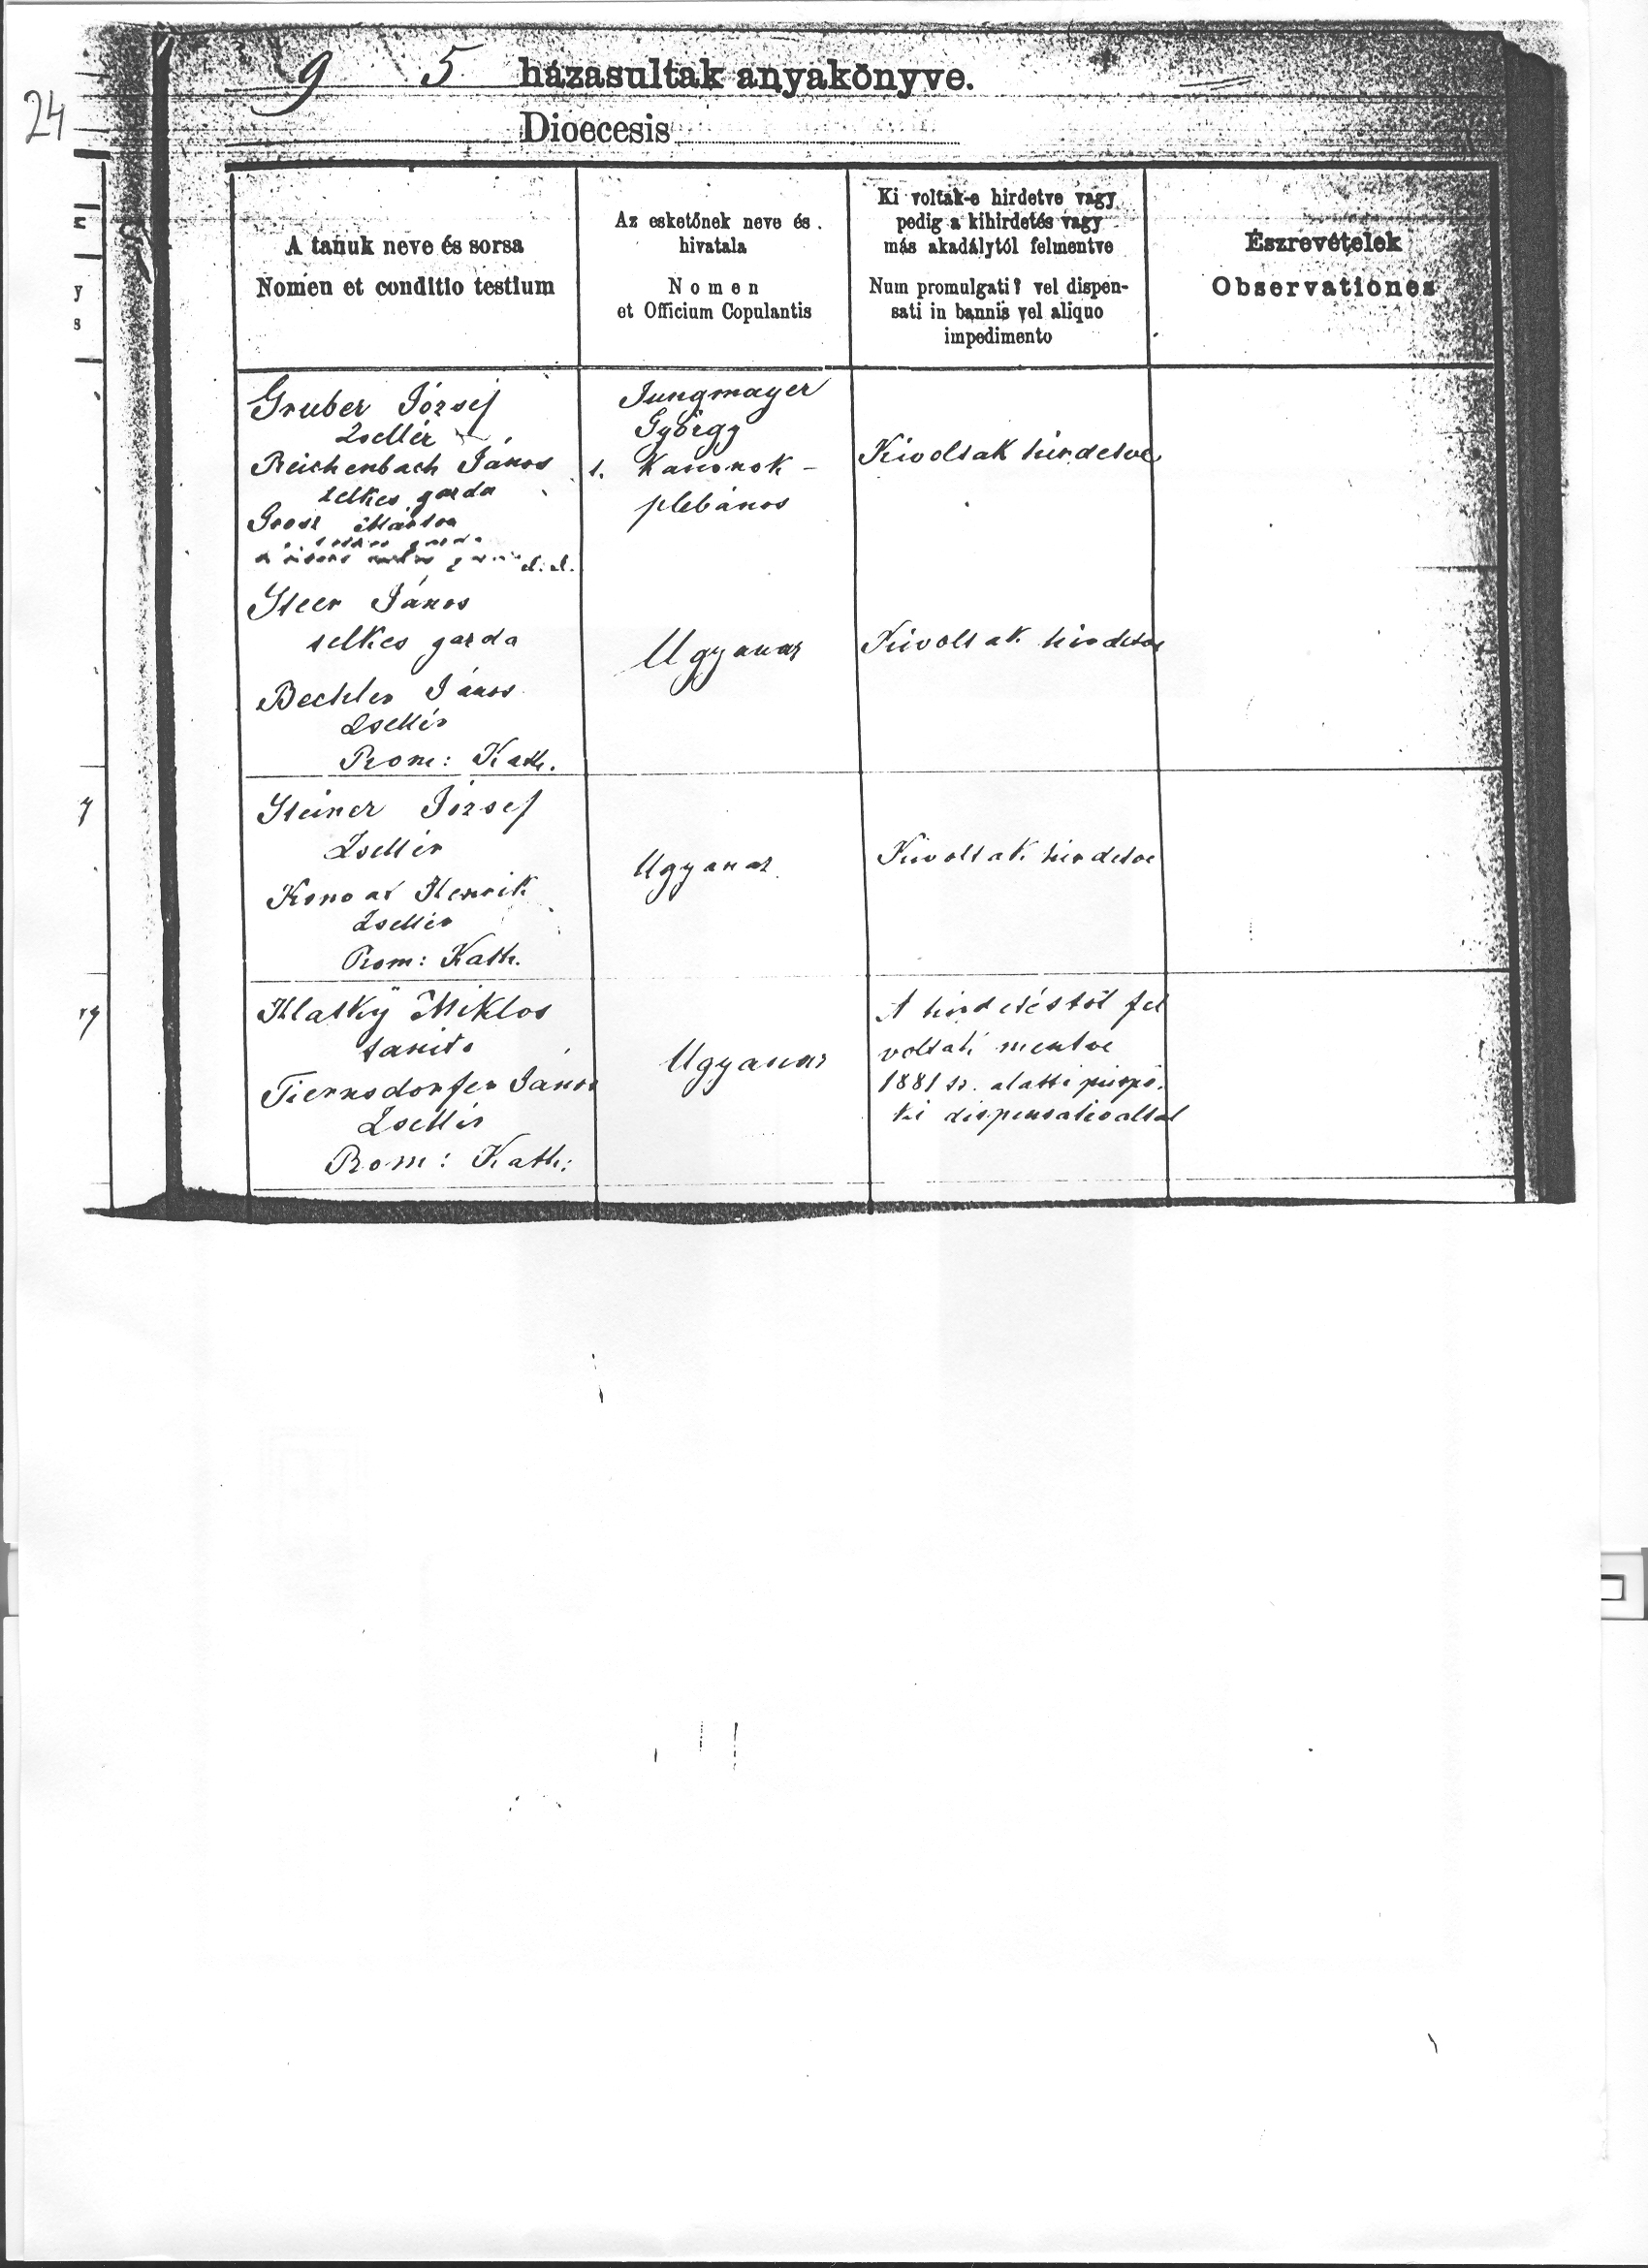 24
9 5 házasultak anyakönyve.
Dioecesis
A tanuk neve és sorsa
Nomen et conditio testium
Az esketőnek neve és
hivatala
Nomen
et Officium Copulantis
Ki voltak-e hirdetve vagy
pedig a kihirdetés vagy
más akadálytól felmentve
Num promulgati? vel dispen-
sati in bannis vel aliquo
impedimento
Észrevételek
Observationes
Gruber József
Zsellér
Reichenbach János
telkes gazda
Grosz Márton
Jungmayer
György
t. Kanonok-
plebános
Kivoltak hirdetve
Steer János
telkes gazda
Bechler János
Zsellér
Rom: Kath.
Ugyanaz
Kivoltak hirdetve
Steiner József
Zsellér
Henrik
Zsellér
Rom: Kath.
Ugyanaz
Kivoltak hirdetve
Hlatky Miklos
tanito
Tiernsdorfer János
Zsellér
Rom: Kath:
Ugyanaz
A hirdetéstöl fel
voltak mentve
1881 sz. alatti püspö-
ki dispensatio által